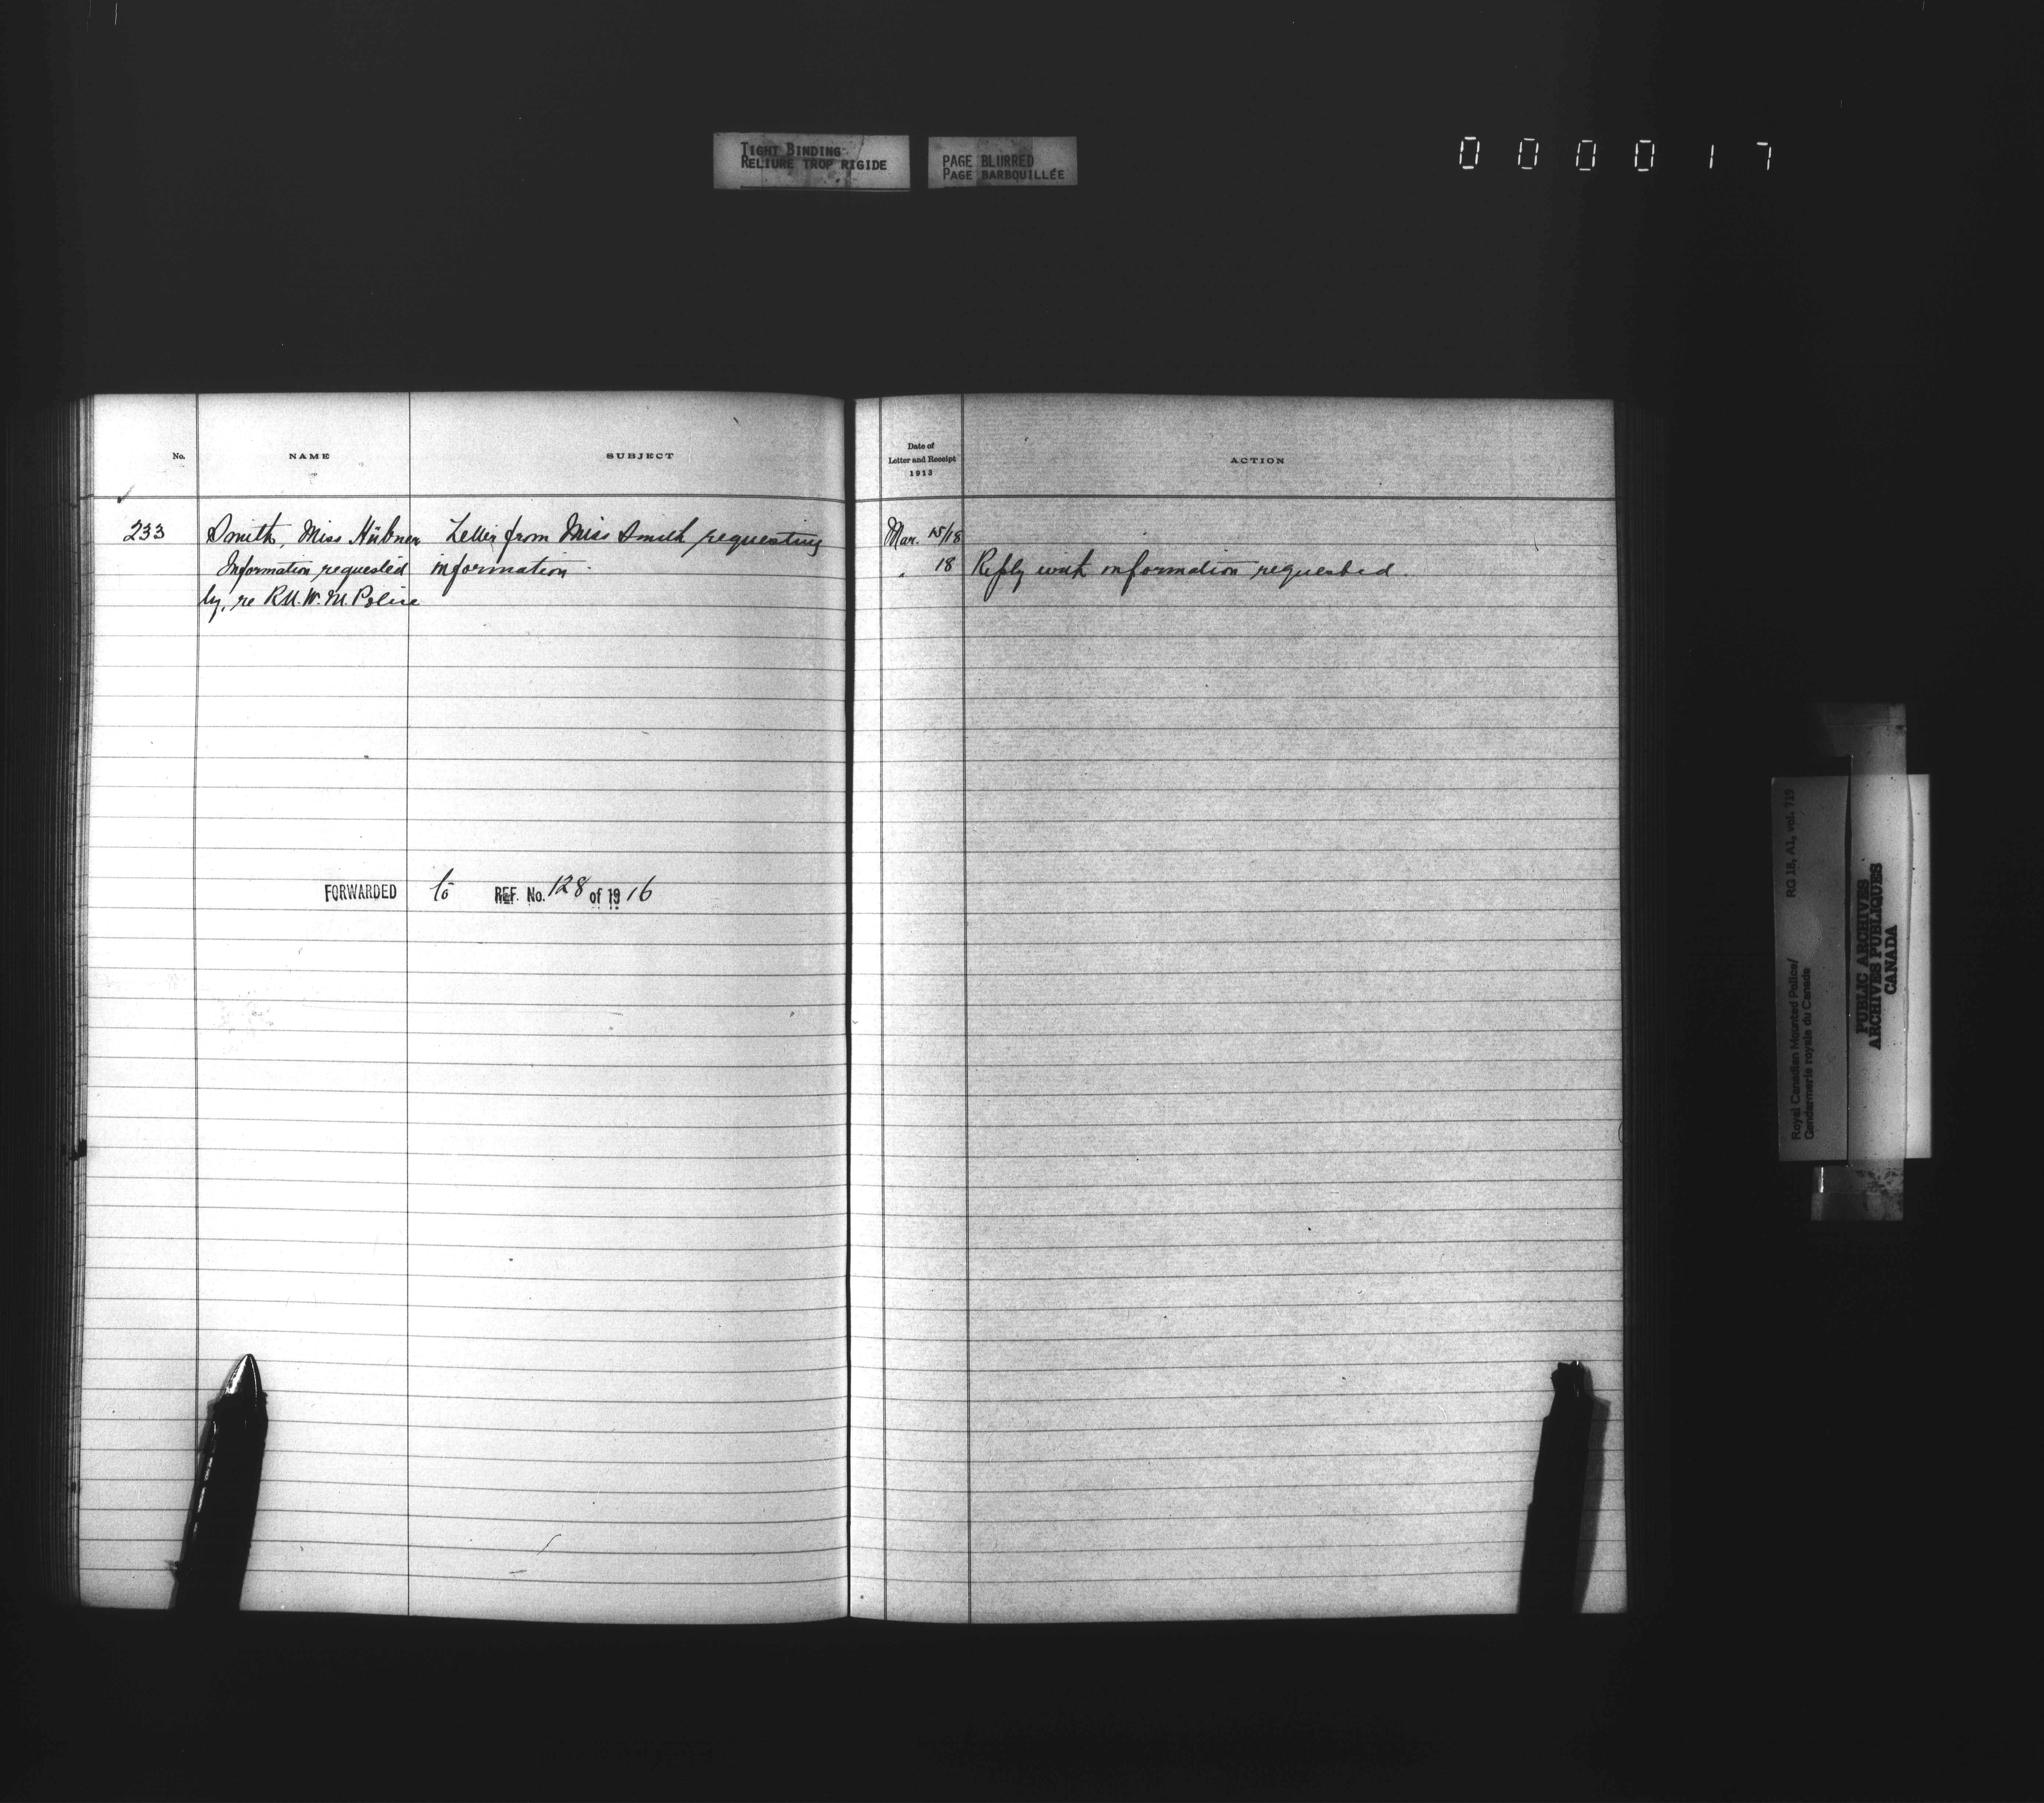 TIGHT BINDING
RELIURE TROP RIGIDE
PAGE BLURRED
PAGE BARBOUILLÉE
000017
No.
NAME
SUBJECT
Date of
Letter and Receipt
1913
ACTION
233 Smith, Miss Hübner Letter from Miss Smith requesting Mar. 15/18
Information requested information. " 18 Reply with information requested.
by, re R.N.W.M. Police
FORWARDED to REF. No. 128 of 1916
Royal Canadian Mounted Police/ RG 18, A1, vol. 719
Gendarmerie royale du Canada
PUBLIC ARCHIVES
ARCHIVES PUBLIQUES
CANADA